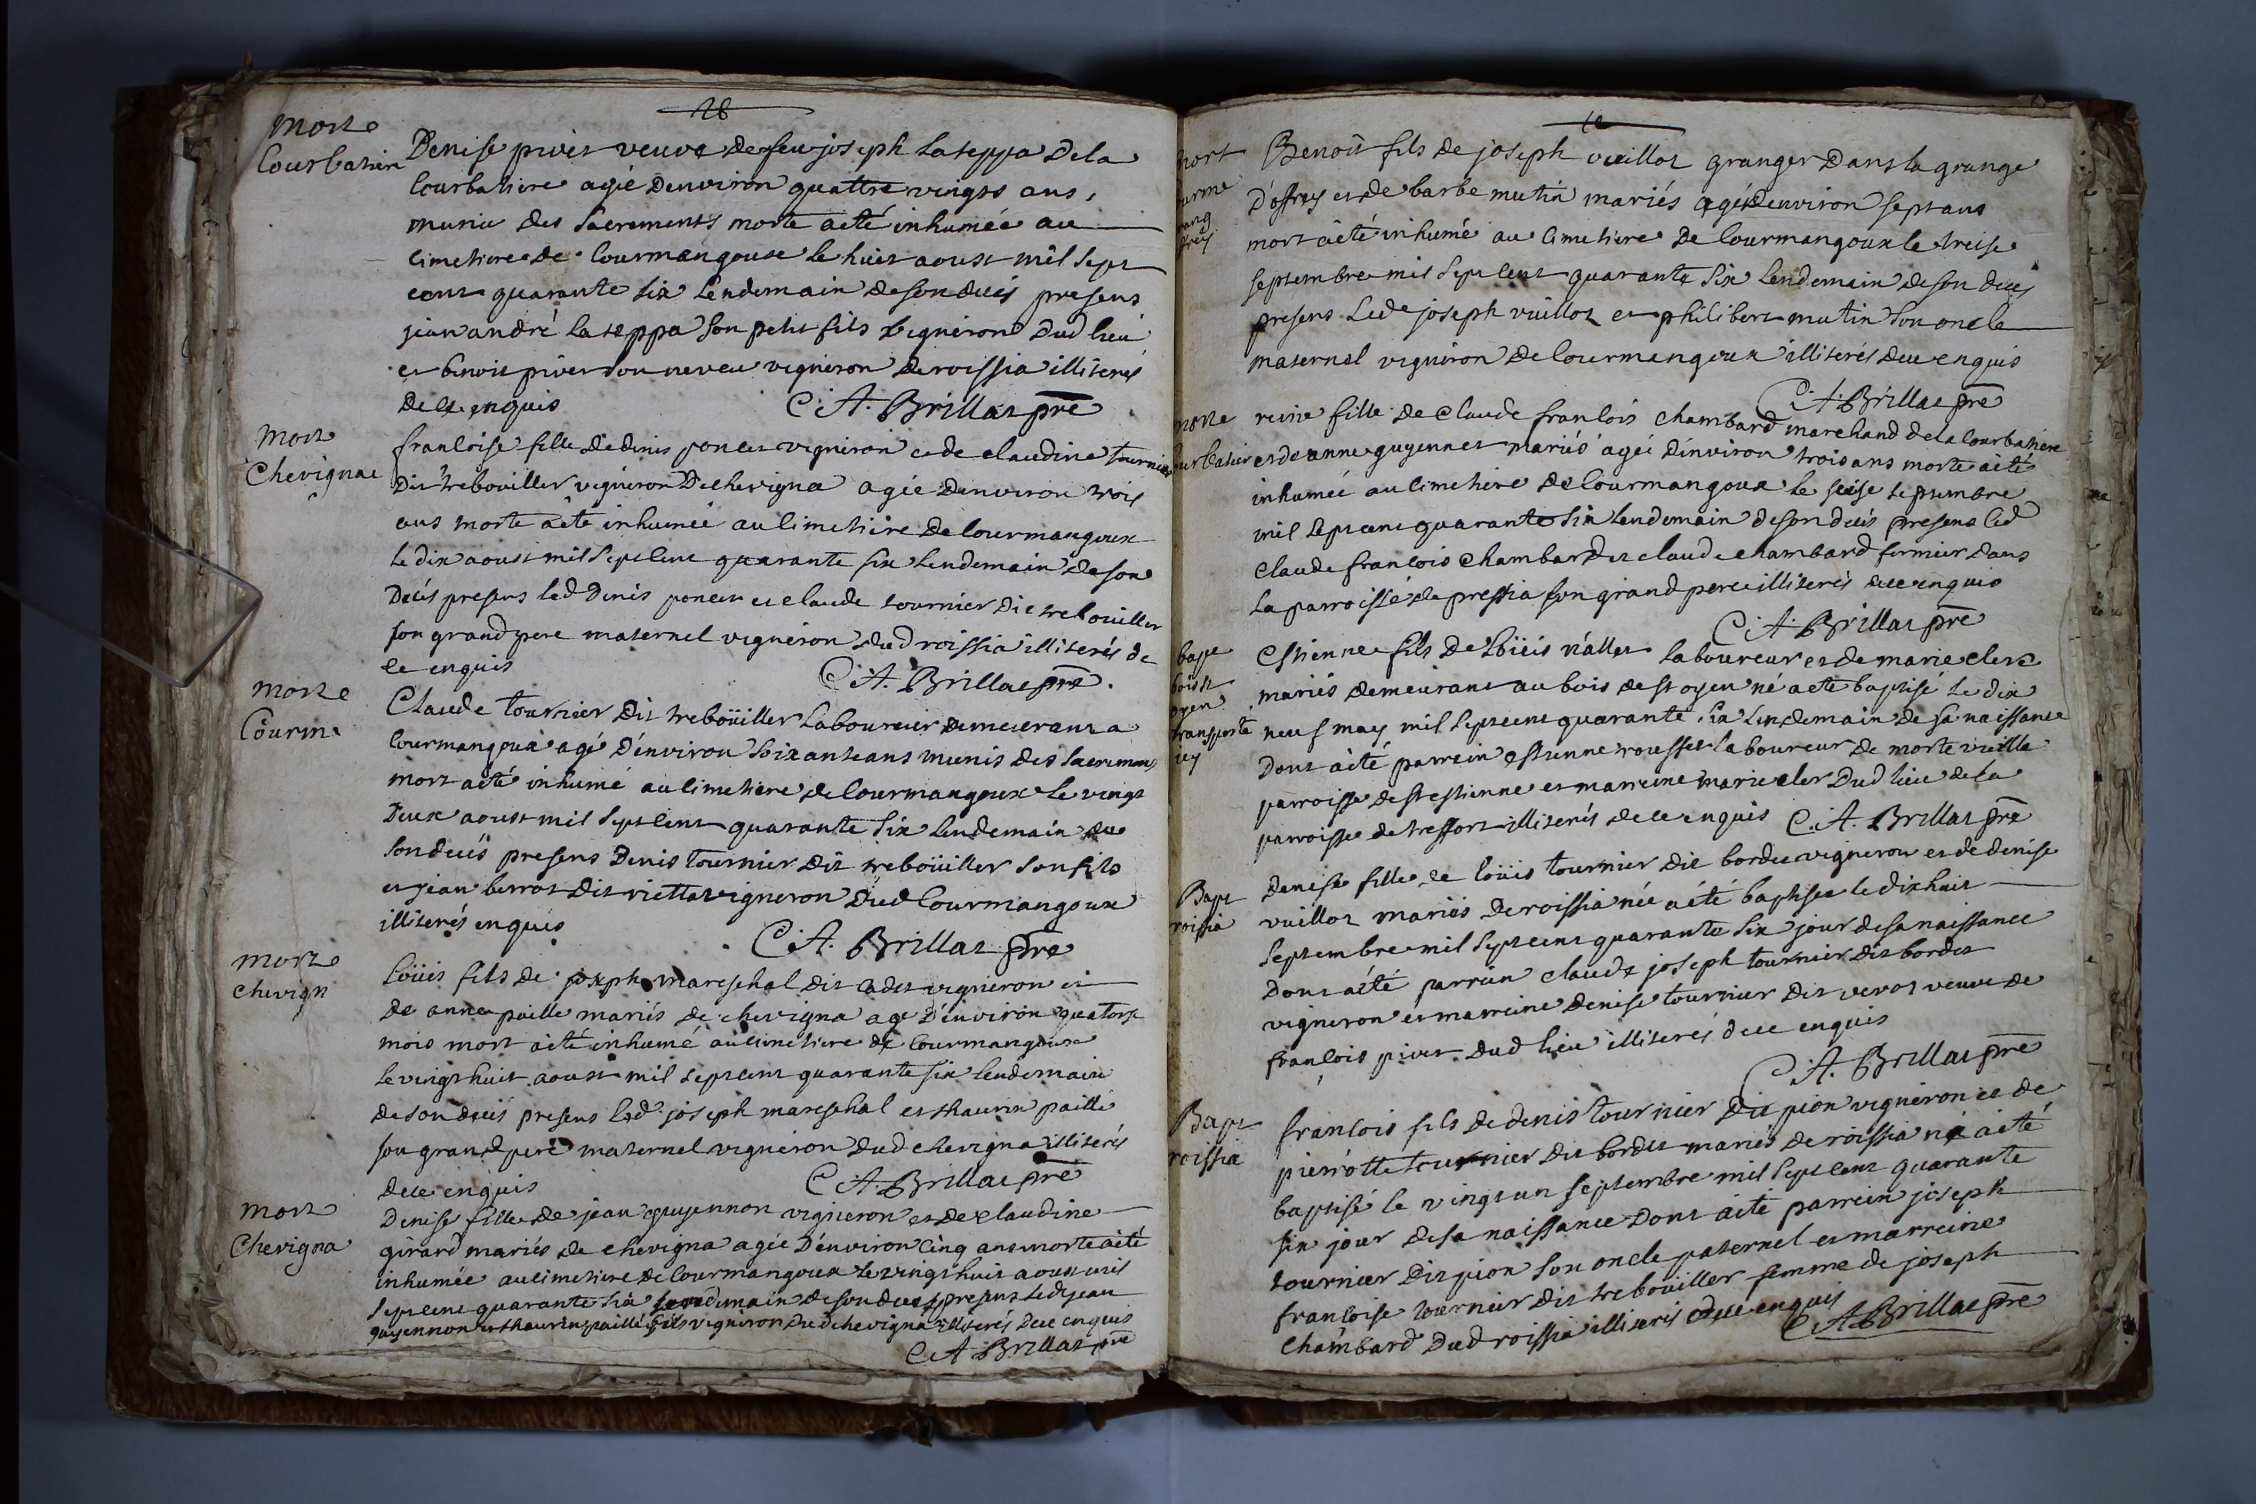 18
morte
Courbatier
Denise pivet veuve de feu joseph lateppa de la
Courbatiere agée denviron quattre vingts ans,
munie des Sacrements morte a eté inhumée au
cimetiere de Courmangoux le huit aoust mil sept
cent quarante six lendemain de son décés presens
jean andré lateppa son petit fils vigneron dud lieu
et benoit pivet son neveu vigneron de roissia illiterés
de ce enquis C. A. Brillat pre
Morte
Chevignat
francoise fille de denis poncet vigneron et de claudine tournier
dit trebouillet vigneron de chevigna agée denviron trois
ans morte a eté inhumée au cimetiere de Courmangoux
le dix aoust mil sept cent quarante six lendemain de son
décés presens led denis poncet et claude tournier dit trebouillet
son grand pere maternel vigneron dud roissia illiterés de
ce enquis C. A. Brillat pre.
morte
Courm
Claude tournier dit treboüillet laboureur demeurant a
Courmangoux agé d'environ soixante ans munis des Sacremens
mort a eté inhumé au cimetiere de Courmangoux le vingt
deux aoust mil sept cent quarante six lendemain de
son decés presens Denis tournier dit treboüillet son fils
et jean berrot dit riettat vigneron dud Courmangoux
illiterés enquis C. A. Brillat pre
mort
chevign
Loüis fils de joseph mareschal dit adet vigneron et
de anne paille mariés de chevigna agé d'environ quatorse
mois mort a eté inhumé au cimetiere de Courmangoux
le vingt huit aoust mil sept cent quarante six lendemain
de son decés presens led joseph mareschal et thaurin paille
son grand pere maternel vigneron dud chevigna illiterés
de ce enquis C. A. Brillat pre
mort
Chevigna
Denise fille de jean guyennon vigneron et de claudine
girard mariés de chevigna agée d'environ cinq ans morte a eté
inhumée au cimetiere de Courmangoux le vingt huit aoust mil
sept cent quarante six lendemain de son decés presens led jean
guyennon et thaurin paille fils vigneron dud chevigna illiterés de ce enquis
C. A. Brillat pre
mort
Benoit fils de joseph vuillot granger dans la grange
d'offrey et de barbe mutin mariés agé d'environ sept ans
mort a eté inhumé au cimetiere de Courmangoux le treise
septembre mil sept cent quarante six lendemain de son decés
presens led joseph vuillot et philibert mutin son oncle
maternel vigneron de Courmangoux illiterés de ce enquis
C. A. Brillat pre
morte
reine fille de claude francois chambard marchand de la Courbatiere
et de anne guyennet mariés agée d'environ trois ans morte a eté
inhumée au cimetiere de Courmangoux le seise septembre
mil sept cent quarante six lendemain de son decés presens led
claude francois chambard et claude chambard fermier dans
la parroisse de pressia son grand pere illiterés de ce enquis
C. A. Brillat pre
bapt
bois st
oyen
transporté
icy
Estienne fils de Loüis nallet laboureur et de marie clerc
mariés demeurant au bois de st oyen né a eté baptisé le dix
neuf may mil sept cent quarante six lendemain de sa naissance
dont a eté parrein estienne rousset laboureur de morte vieille
parroisse de st estienne et marreine marie cler dud lieu de la
parroisse de treffort illiterés de ce enquis C. A. Brillat pre
Bapt
roissia
denise fille de loüis tournier dit bordet vigneron et de denise
vuillot mariés de roissia née a été baptisée le dix huit
septembre mil sept cent quarante six jour de sa naissance
dont a été parrein claude joseph tournier dit bordet
vigneron et marreine denise tournier dit verot veuve de
françois pivet dud lieu illiterés de ce enquis
C. A. Brillat pre
Bapt
roissia
francois fils de denis tournier dit pion vigneron et de
pierrotte tournier dit bordet mariés de roissia né a eté
baptisé le vingt un septembre mil sept cent quarante
six jour de sa naissance dont a eté parrein joseph
tournier dit pion son oncle paternel et marreine
francoise tournier dit treboüillet femme de joseph
chambard dud roissia illiteris de ce enquis
C. A. Brillat pre